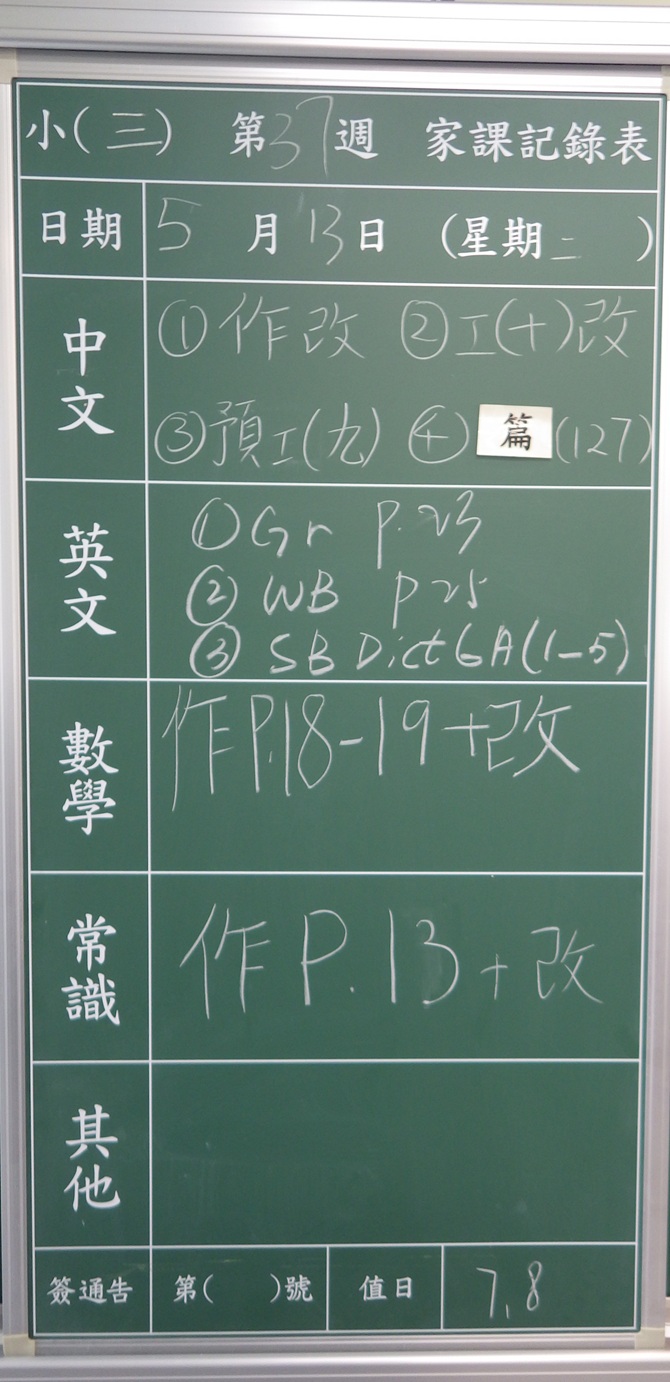 小(三) 第37週 家課記錄表
日期 5月13日 (星期二)
中文
①作改 ②工(十)改
③預工(九) ④篇(127)
英文
①Gr P.23
②WB P25
③SB Dict6A(1-5)
數學
作P.18-19+改
常識
作P.13+改
其他
簽通告 第( )號 值日 7,8